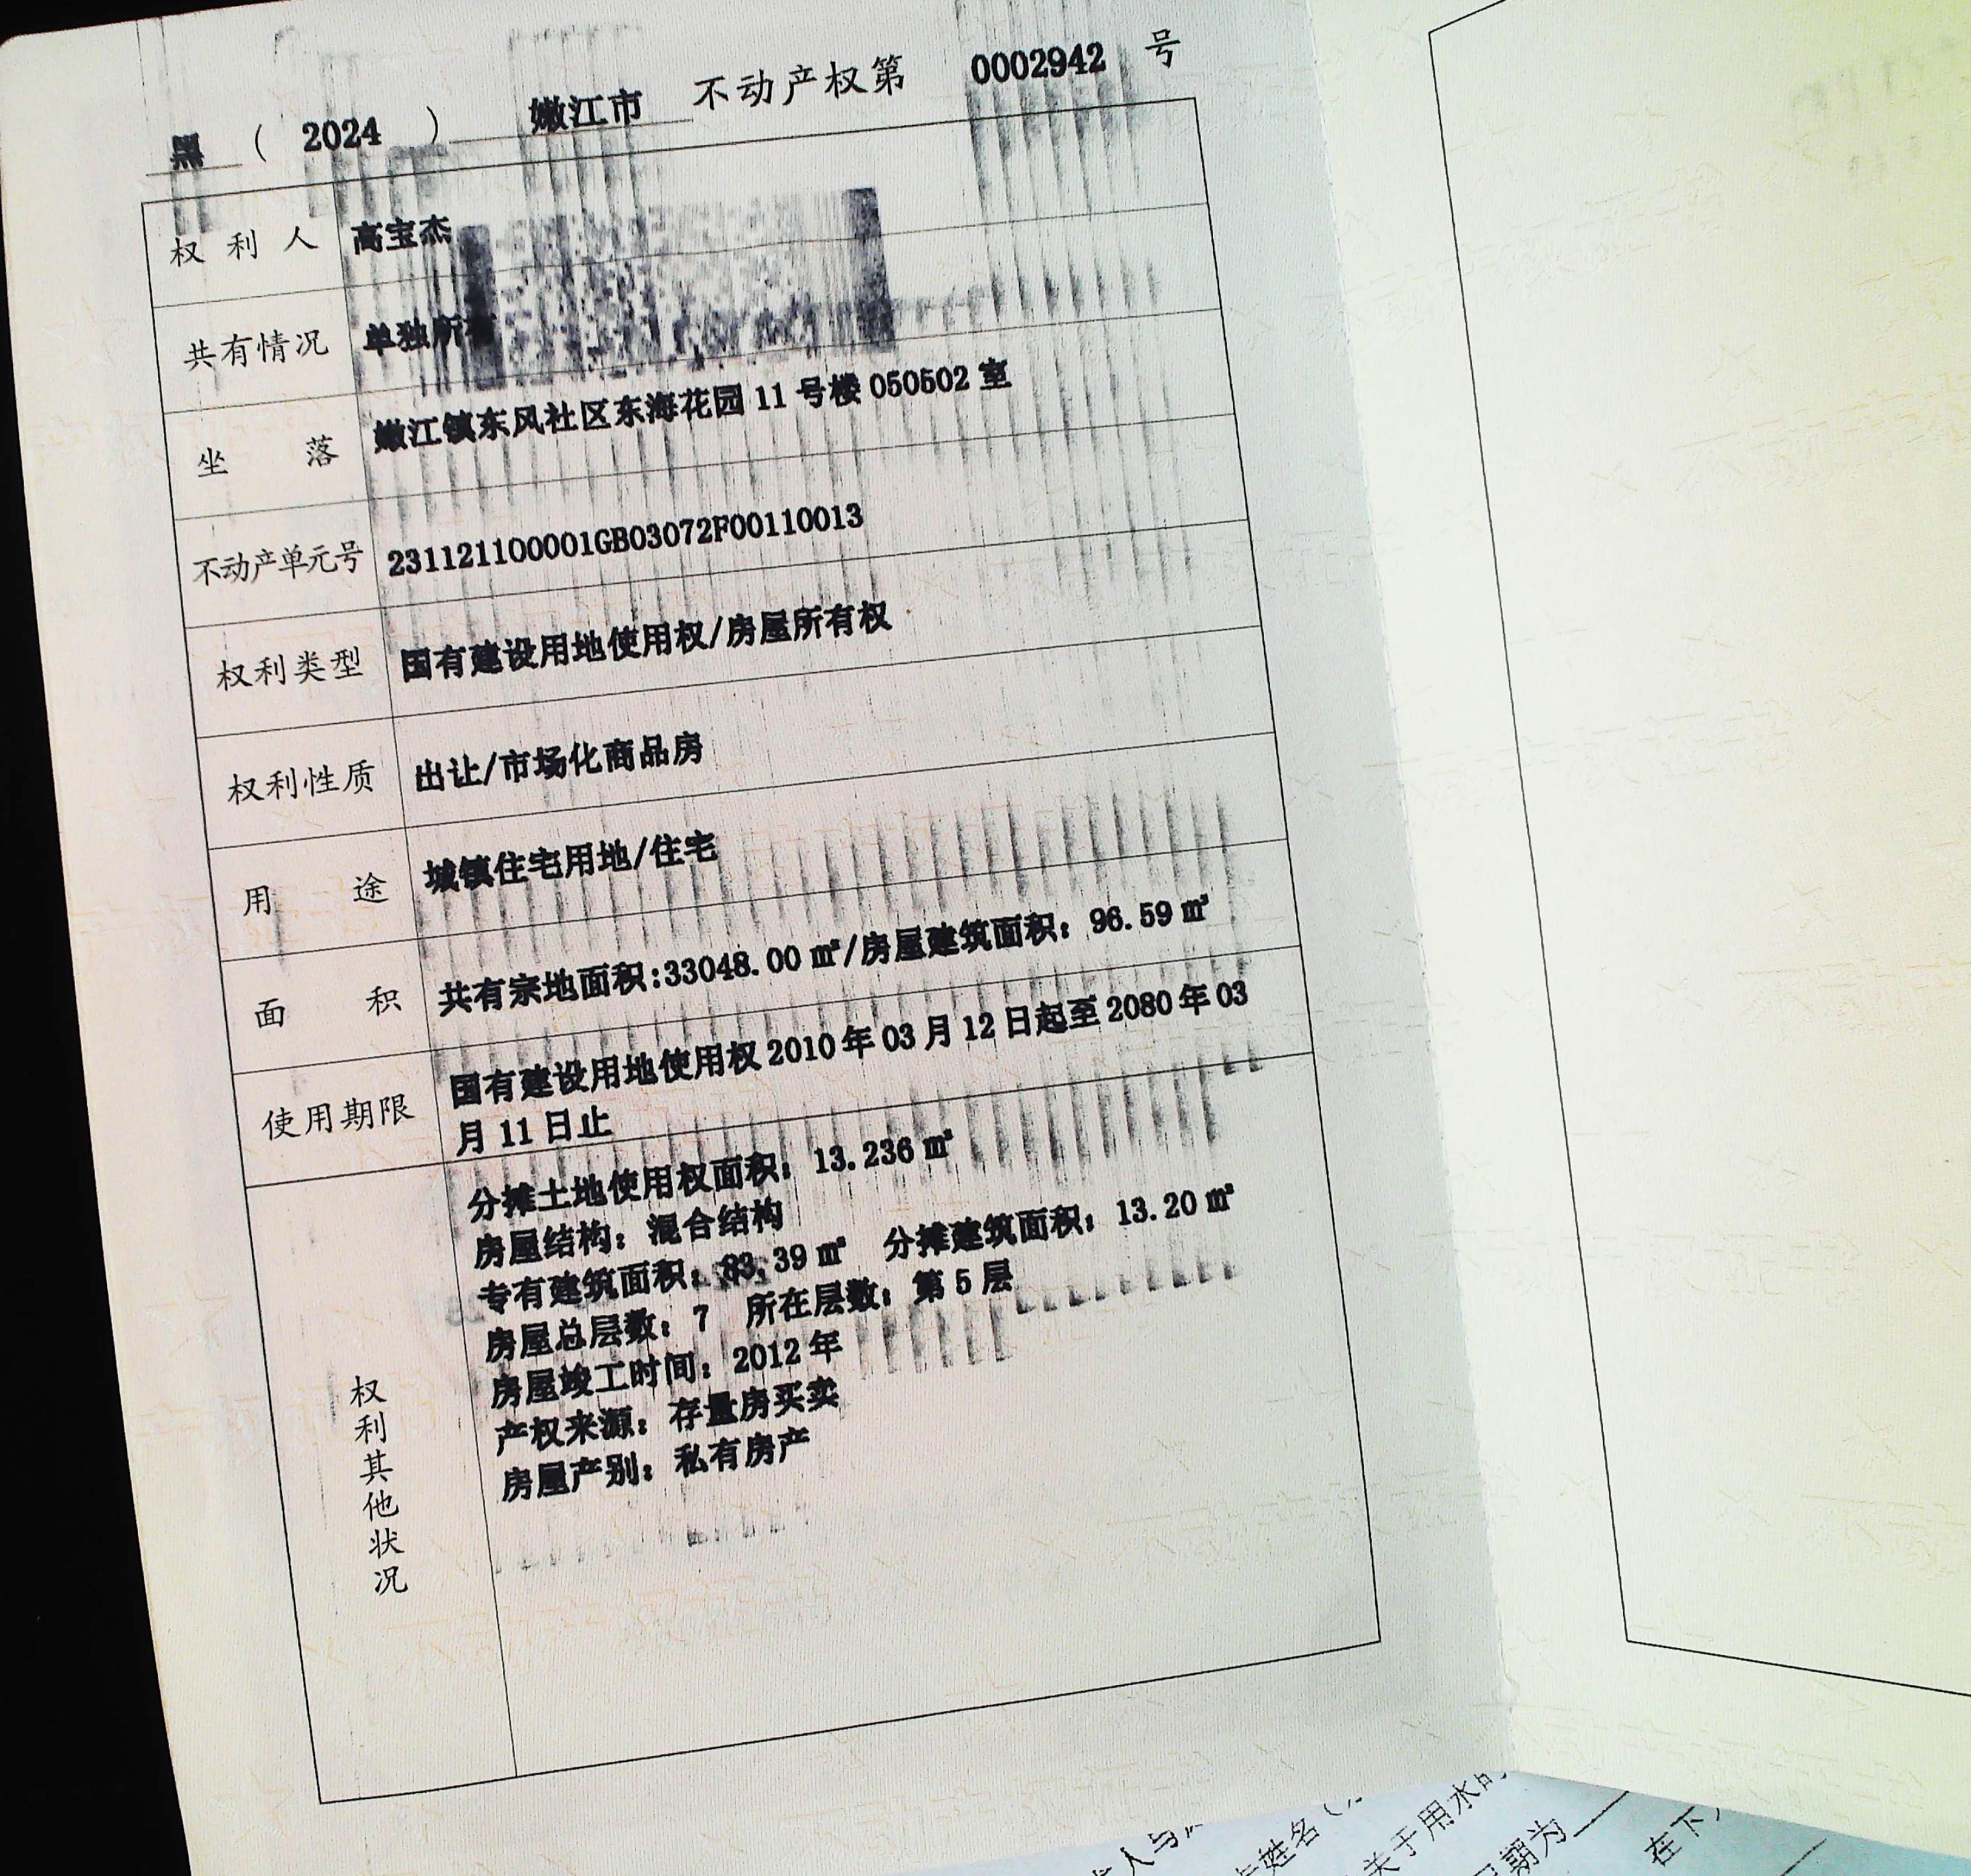 黑 ( 2024 ) 嫩江市 不动产权第 0002942 号
权利人 高宝杰
共有情况 单独所有
坐落 嫩江镇东风社区东海花园 11 号楼 050502 室
不动产单元号 231121100001GB03072F00110013
权利类型 国有建设用地使用权/房屋所有权
权利性质 出让/市场化商品房
用途 城镇住宅用地/住宅
面积 共有宗地面积:33048.00 ㎡/房屋建筑面积：96.59 ㎡
使用期限 国有建设用地使用权 2010 年 03 月 12 日起至 2080 年 03
月 11 日止
权利其他状况
分摊土地使用权面积：13.236 ㎡
房屋结构：混合结构
专有建筑面积：83.39 ㎡ 分摊建筑面积：13.20 ㎡
房屋总层数：7 所在层数：第 5 层
房屋竣工时间：2012 年
产权来源：存量房买卖
房屋产别：私有房产
人与
姓名
关于用水的
期为
在下